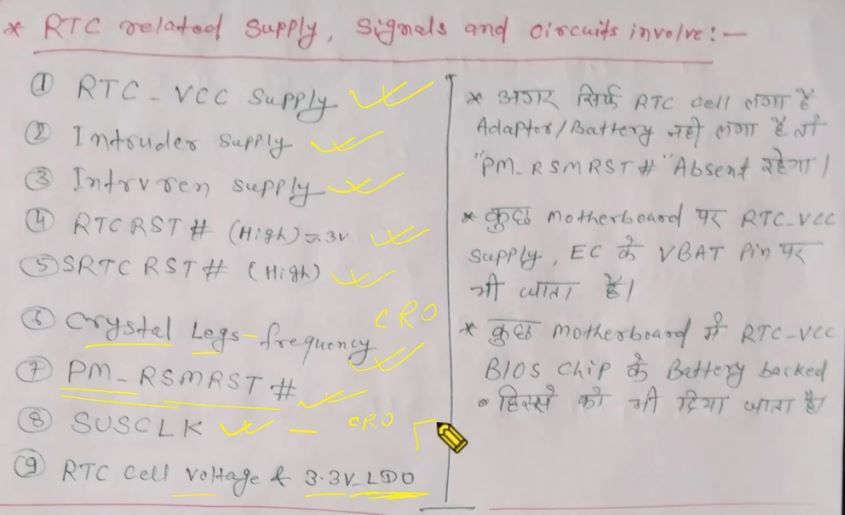 * RTC related Supply, Signals and circuits involve:-
① RTC-VCC Supply
② Intruder Supply
③ Intvren Supply
④ RTCRST# (High)≈3v
⑤ SRTCRST# (High)
⑥ Crystal Legs-frequency CRO
⑦ PM-RSMRST#
⑧ SUSCLK - CRO
⑨ RTC Cell Voltage & 3.3V_LDO
* अगर सिर्फ RTC cell लगा है
Adaptor/Battery नही लगा है तो
"PM_RSMRST#" Absent रहेगा।
* कुछ motherboard पर RTC-VCC
Supply, EC के VBAT Pin पर
भी जाता है।
* कुछ motherboard में RTC-VCC
BIOS Chip के Battery backed
हिस्से को भी दिया जाता है।